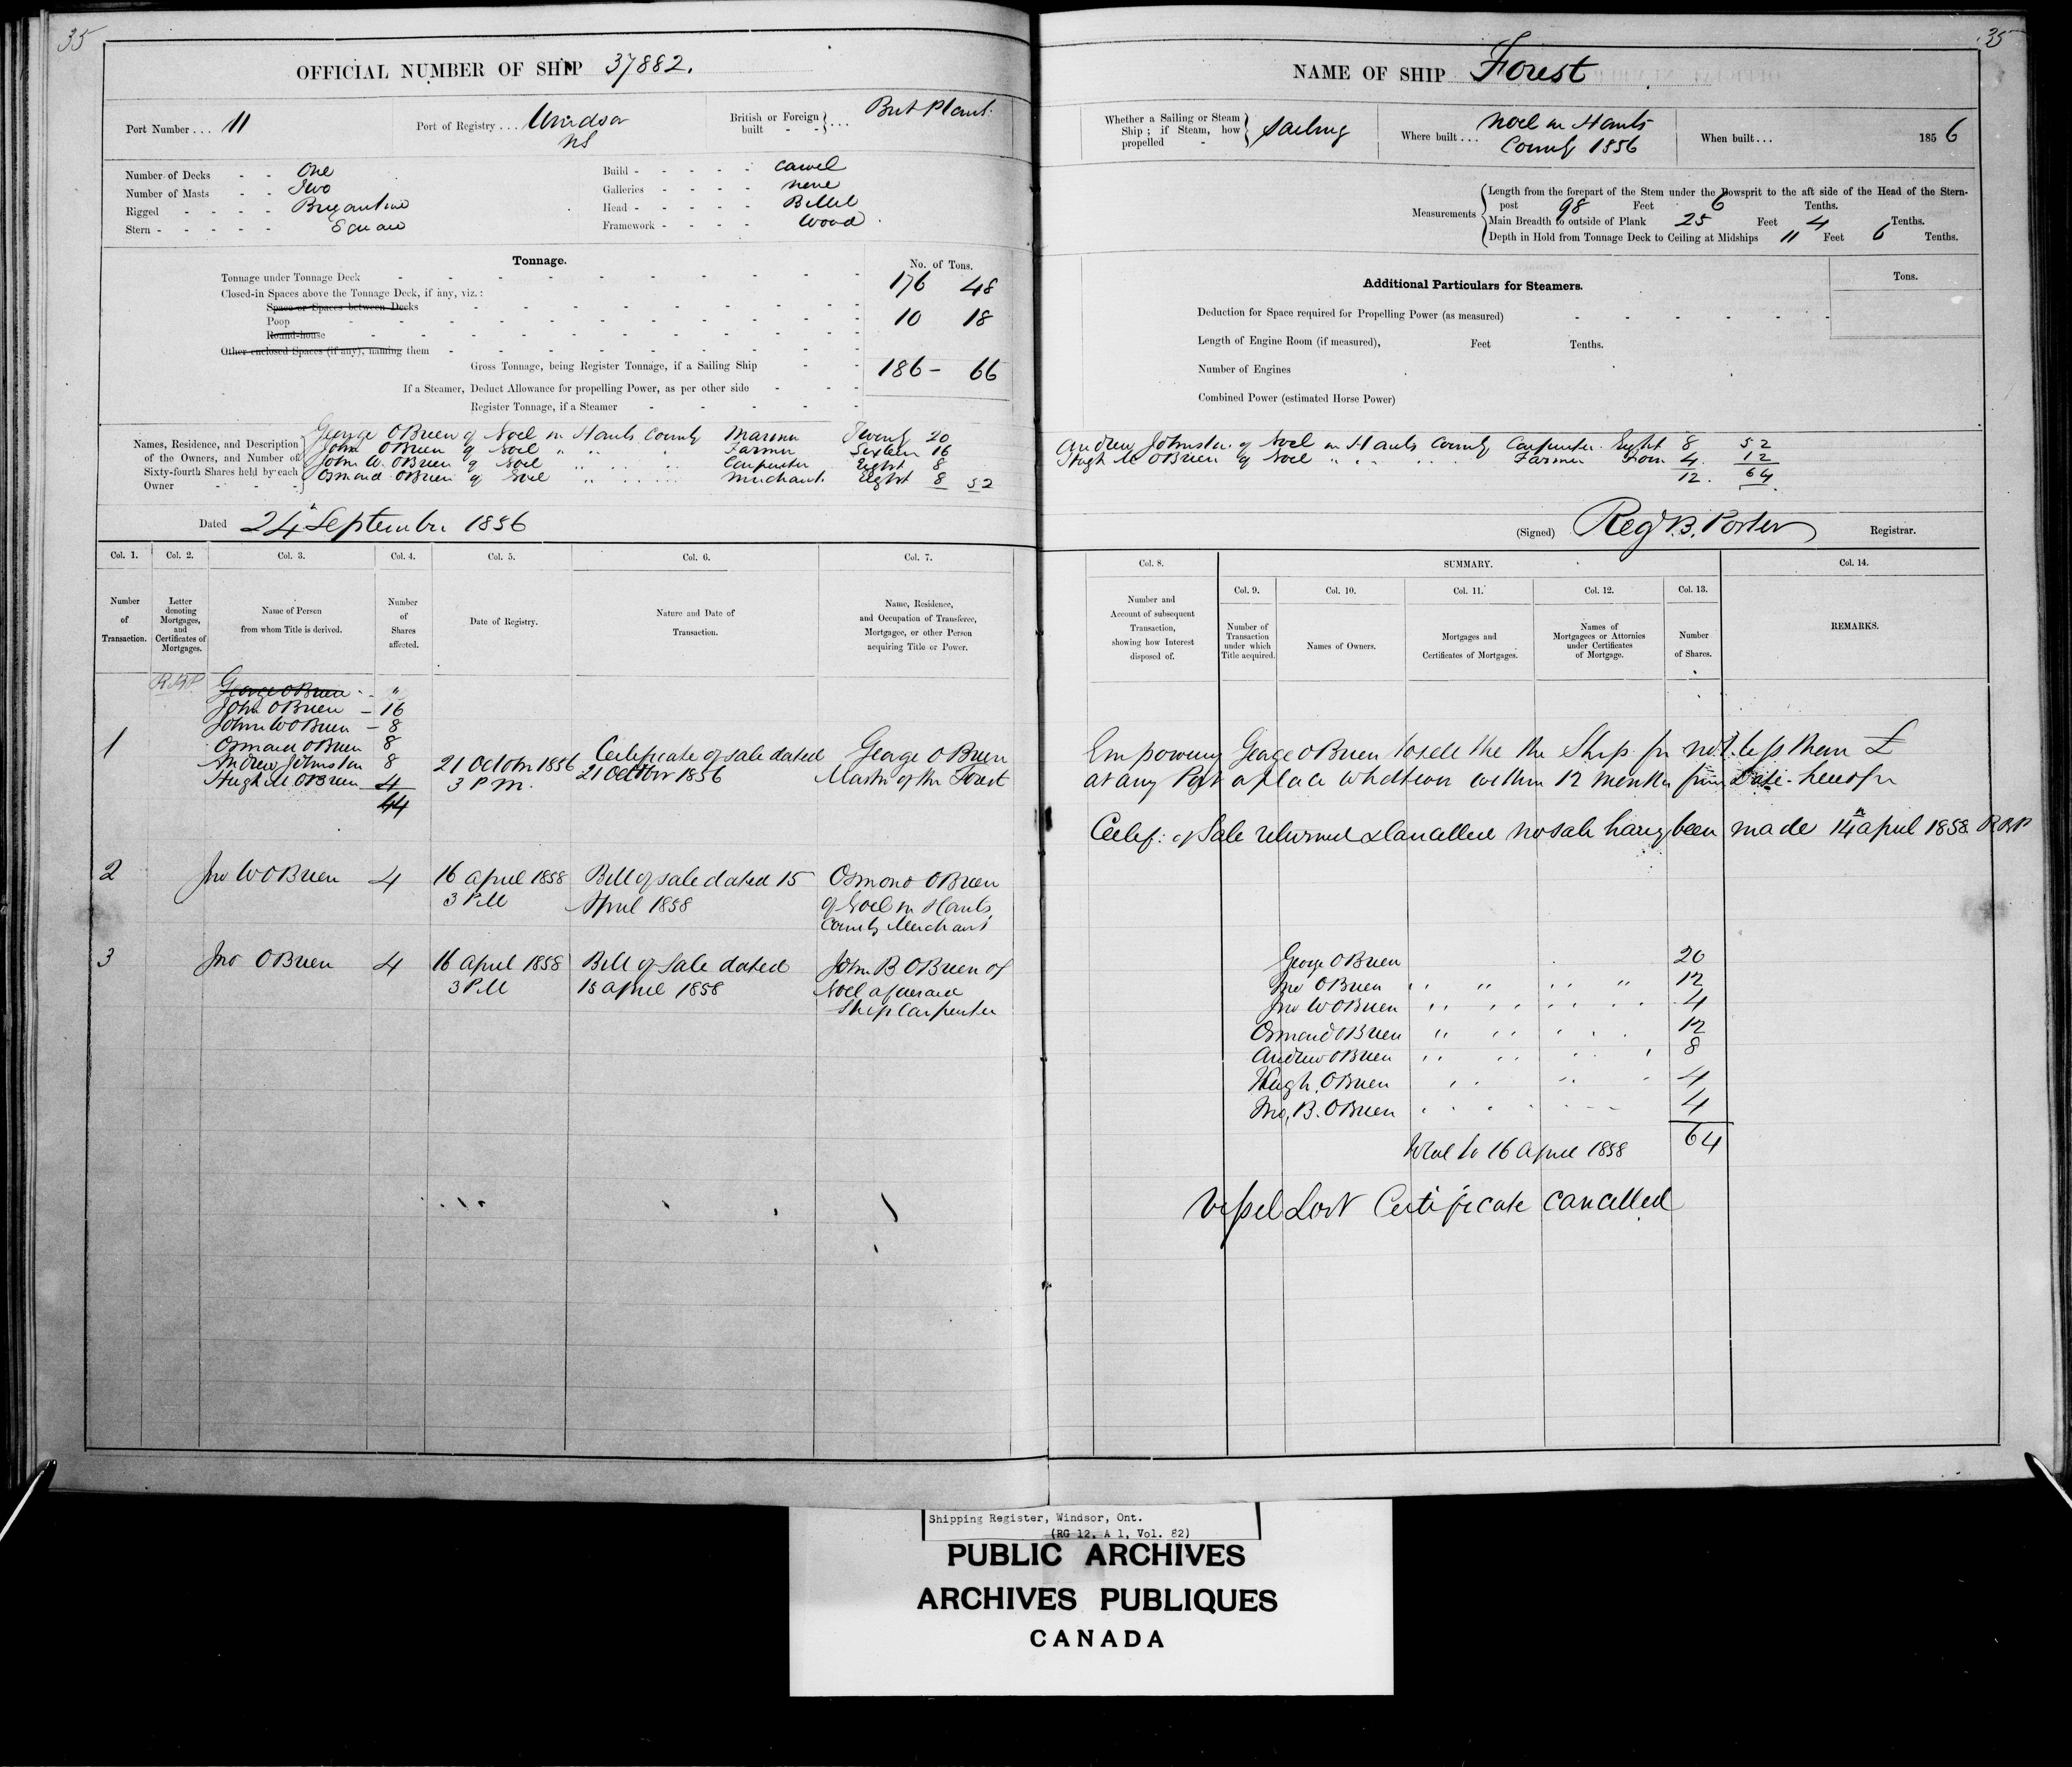 35
OFFICIAL NUMBER OF SHIP 37882.
Port Number . . . 11
Port of Registry . . . Windsor
NS
British or Foreign built - - } . . . Brit Plant.
Number of Decks - - One
Number of Masts - - Two
Rigged - - - - Brigantine
Stern - - - - - Square
Build - - - - - Carvel
Galleries - - - - none
Head - - - - - Billet
Framework - - - - Wood
Tonnage.
No. of Tons.
Tonnage under Tonnage Deck 176 48
Closed-in Spaces above the Tonnage Deck, if any, viz.:
Space or Spaces between Decks
Poop 10 18
Round-house
Other enclosed Spaces (if any), naming them
Gross Tonnage, being Register Tonnage, if a Sailing Ship 186 - 66
If a Steamer, Deduct Allowance for propelling Power, as per other side
Register Tonnage, if a Steamer
Names, Residence, and Description of the Owners, and Number of Sixty-fourth Shares held by each Owner
George OBrien of Noel in Hants County Mariner Twenty 20
John OBrien of Noel " " " Farmer Sixteen 16
John W. OBrien of Noel Carpenter Eight 8
Osmond OBrien of Noel " Merchant Eight 8 52
Dated 24th September 1856
Col. 1. Col. 2. Col. 3. Col. 4. Col. 5. Col. 6. Col. 7.
Number of Transaction.
Letter denoting Mortgages, and Certificates of Mortgages.
Name of Person from whom Title is derived.
Number of Shares affected.
Date of Registry.
Nature and Date of Transaction.
Name, Residence, and Occupation of Transferee, Mortgagee, or other Person acquiring Title or Power.
RBP George OBrien - "
John OBrien - 16
John W OBrien - 8
Osmond OBrien 8
1 Andrew Johnston 8
Hugh M OBrien 4
44
21 October 1856
3 P M.
Certificate of sale dated
21 October 1856
George O Brien
Master of the Forest
2 Jno W OBrien 4
16 April 1858
3 PM
Bill of sale dated 15
April 1858
Osmond OBrien
of Noel in Hants
County Merchant
3 Jno OBrien 4
16 April 1858
3 PM
Bill of Sale dated
15 April 1858
John B OBrien of
Noel aforesaid
Ship Carpenter
35
NAME OF SHIP Forest
Whether a Sailing or Steam Ship; if Steam, how propelled - } Sailing
Where built . . . Noel in Hants
County 1856
When built . . . 1856
Measurements
Length from the forepart of the Stem under the Bowsprit to the aft side of the Head of the Stern-
post 98 Feet 6 Tenths.
Main Breadth to outside of Plank 25 Feet 4 Tenths.
Depth in Hold from Tonnage Deck to Ceiling at Midships 11 Feet 6 Tenths.
Additional Particulars for Steamers.
Tons.
Deduction for Space required for Propelling Power (as measured)
Length of Engine Room (if measured), Feet Tenths.
Number of Engines
Combined Power (estimated Horse Power)
Andrew Johnston of Noel in Hants County Carpenter Eight 8 52
Hugh M OBrien of Noel " " Farmer Four 4. 12
12. 64
(Signed) Reg B. Porter Registrar.
Col. 8. SUMMARY. Col. 14.
Col. 9. Col. 10. Col. 11. Col. 12. Col. 13.
Number and Account of subsequent Transaction, showing how Interest disposed of.
Number of Transaction under which Title acquired.
Names of Owners.
Mortgages and Certificates of Mortgages.
Names of Mortgagees or Attornies under Certificates of Mortgage.
Number of Shares.
REMARKS.
Empowering George OBrien to sell the the Ship for not less than £
at any Port or place whatever within 12 Months from Date hereof
Certif: of Sale returned & Cancelled no sale having been made 14th April 1858 RBP
George OBrien 20
Jno OBrien 12
Jno W OBrien 4
Osmond OBrien 12
Andrew OBrien 8
Hugh OBrien 4
Jno. B. OBrien 4
64
to 16 April 1858
Vessel Lost Certificate cancelled
Shipping Register, Windsor, Ont.
(RG 12, A 1, Vol. 82)
PUBLIC ARCHIVES
ARCHIVES PUBLIQUES
CANADA